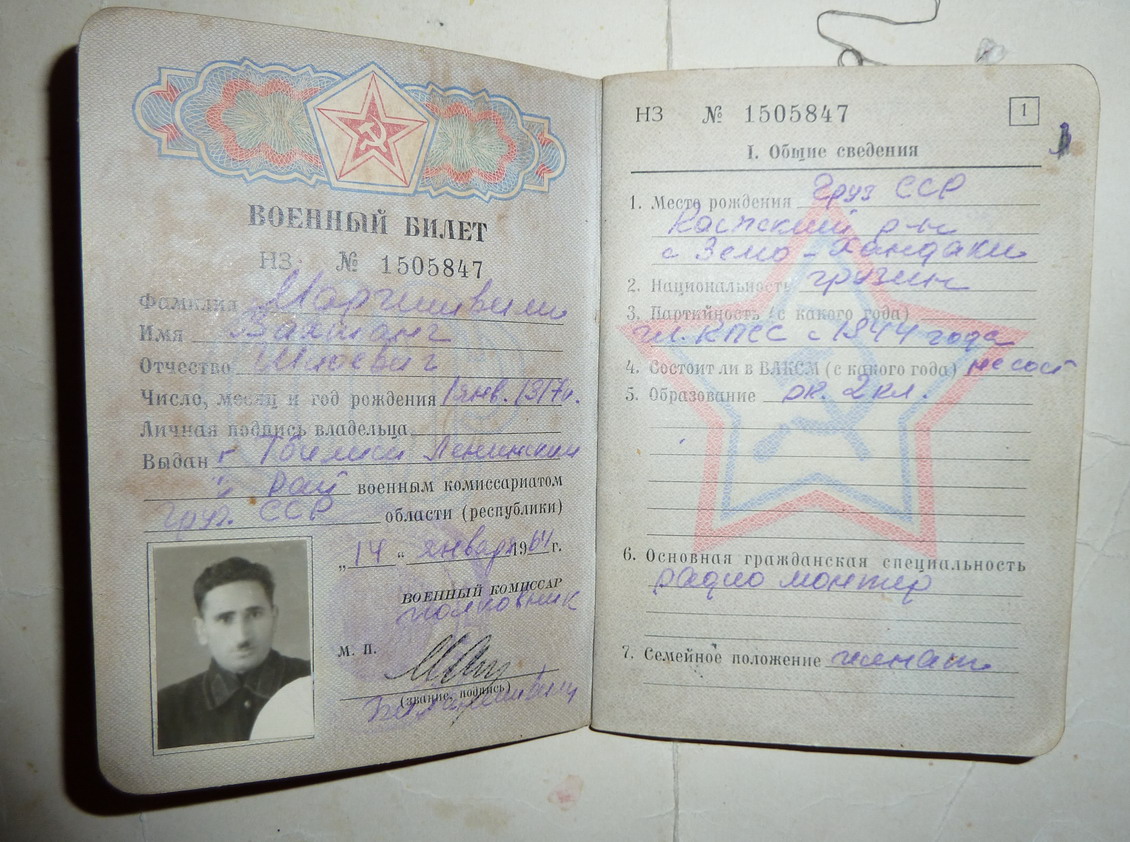 ВОЕННЫЙ БИЛЕТ
НЗ № 1505847
Фамилия Маргишвили
Имя Вахтанг
Отчество
Число, месяц и год рождения 1 янв. 1917 г.
Личная подпись владельца
Выдан г. Тбилиси Ленинским
рай военным комиссариатом
Груз. ССР области (республики)
„14 “ января 1964 г.
ВОЕННЫЙ КОМИССАР
полковник
М. П.
(звание, подпись)
НЗ № 1505847
1
I. Общие сведения
1. Место рождения Груз ССР
Каспский р-н
с Земо-Хандаки
2. Национальность грузин
3. Партийность (с какого года)
чл. КПСС с 1944 года
4. Состоит ли в ВЛКСМ (с какого года) не сост
5. Образование ок. 2 кл.
6. Основная гражданская специальность
радио монтер
7. Семейное положение женат